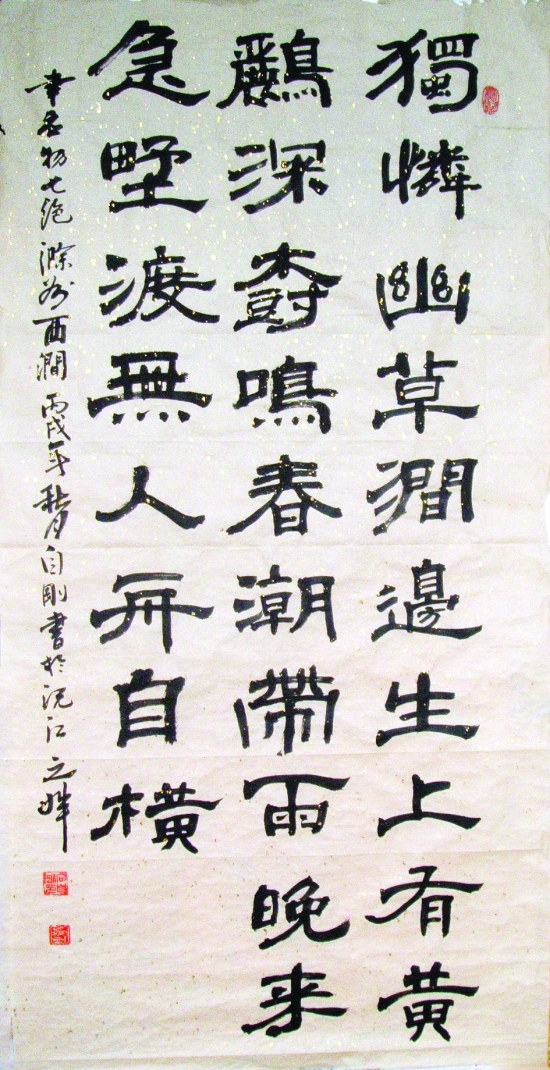 獨憐幽草澗邊生上有黃
鸝深樹鳴春潮帶雨晚来
急野渡無人舟自橫
韋应物七绝滁州西澗丙戌年秋月自剛書於沅江之畔